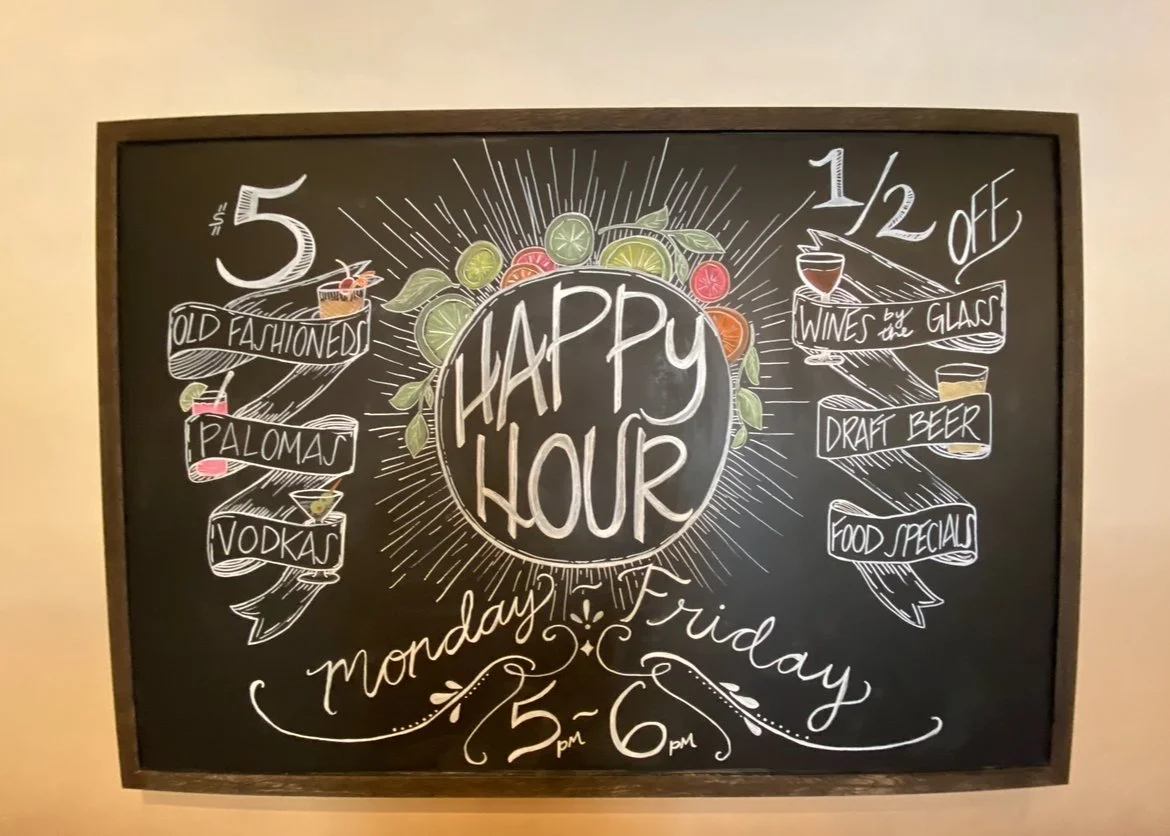 $5
OLD FASHIONEDS
PALOMAS
VODKAS
HAPPY
HOUR
1/2 OFF
WINES by the GLASS
DRAFT BEER
FOOD SPECIALS
Monday ~ Friday
5pm ~ 6pm